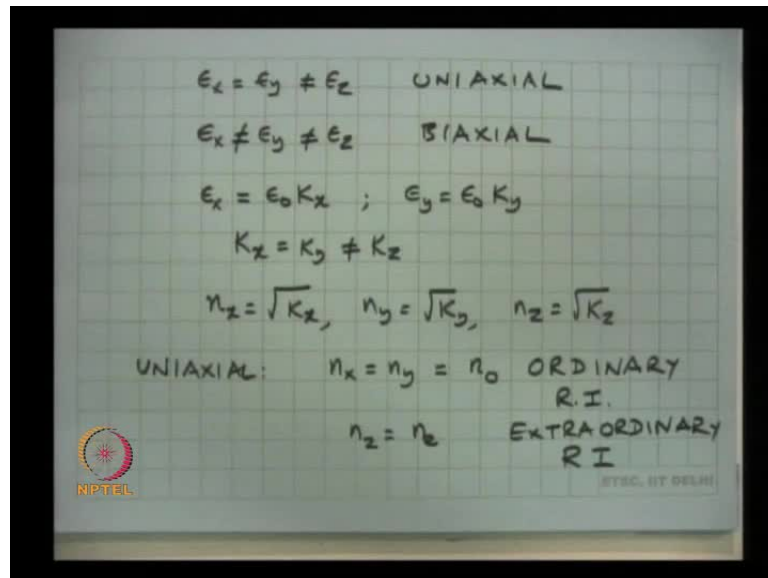 ϵx = ϵy ≠ ϵz UNIAXIAL
ϵx ≠ ϵy ≠ ϵz BIAXIAL
ϵx = ϵ0 Kx ; ϵy = ϵ0 Ky
Kx = Ky ≠ Kz
nx = √Kx, ny = √Ky, nz = √Kz
UNIAXIAL: nx = ny = no ORDINARY
R.I.
nz = ne EXTRAORDINARY
RI
NPTEL
ETSC, IIT DELHI